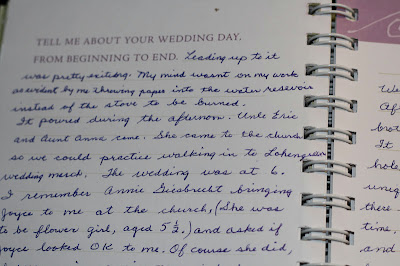 TELL ME ABOUT YOUR WEDDING DAY,
FROM BEGINNING TO END. Leading up to it
was pretty exciting. My mind wasnt on my work
as evident by me throwing paper into the water resevoir
instead of the stove to be burned.
It poured during the afternoon. Unle Eric
and Aunt Anna came. She came to the church
so we could practice walking in to Lohengren
wedding march. The wedding was at 6.
I remember Annie Giesbrecht bringing
Joyce to me at the church, (She was
to be flower girl, aged 5½.) and asked if
Joyce looked OK to me. Of course she did,
We
Af
brot
It
hole
uniq
there
time.
and